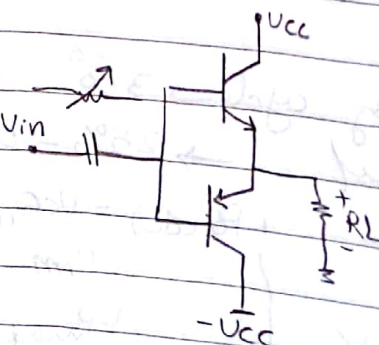 Vcc
Vin
+
RL
-
-Vcc